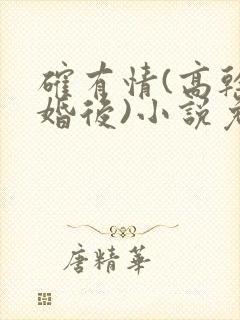 確有情(高幹
婚後)小說免
唐精華